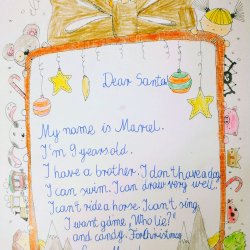 Dear Santa
My name is Marcel.
I'm 9 years old.
I have a brother. I don't have a dog.
I can swim. I can draw very well.
I can't ride a horse. I can't sing.
I want game, "Who lie?"
and candy. For Christmas